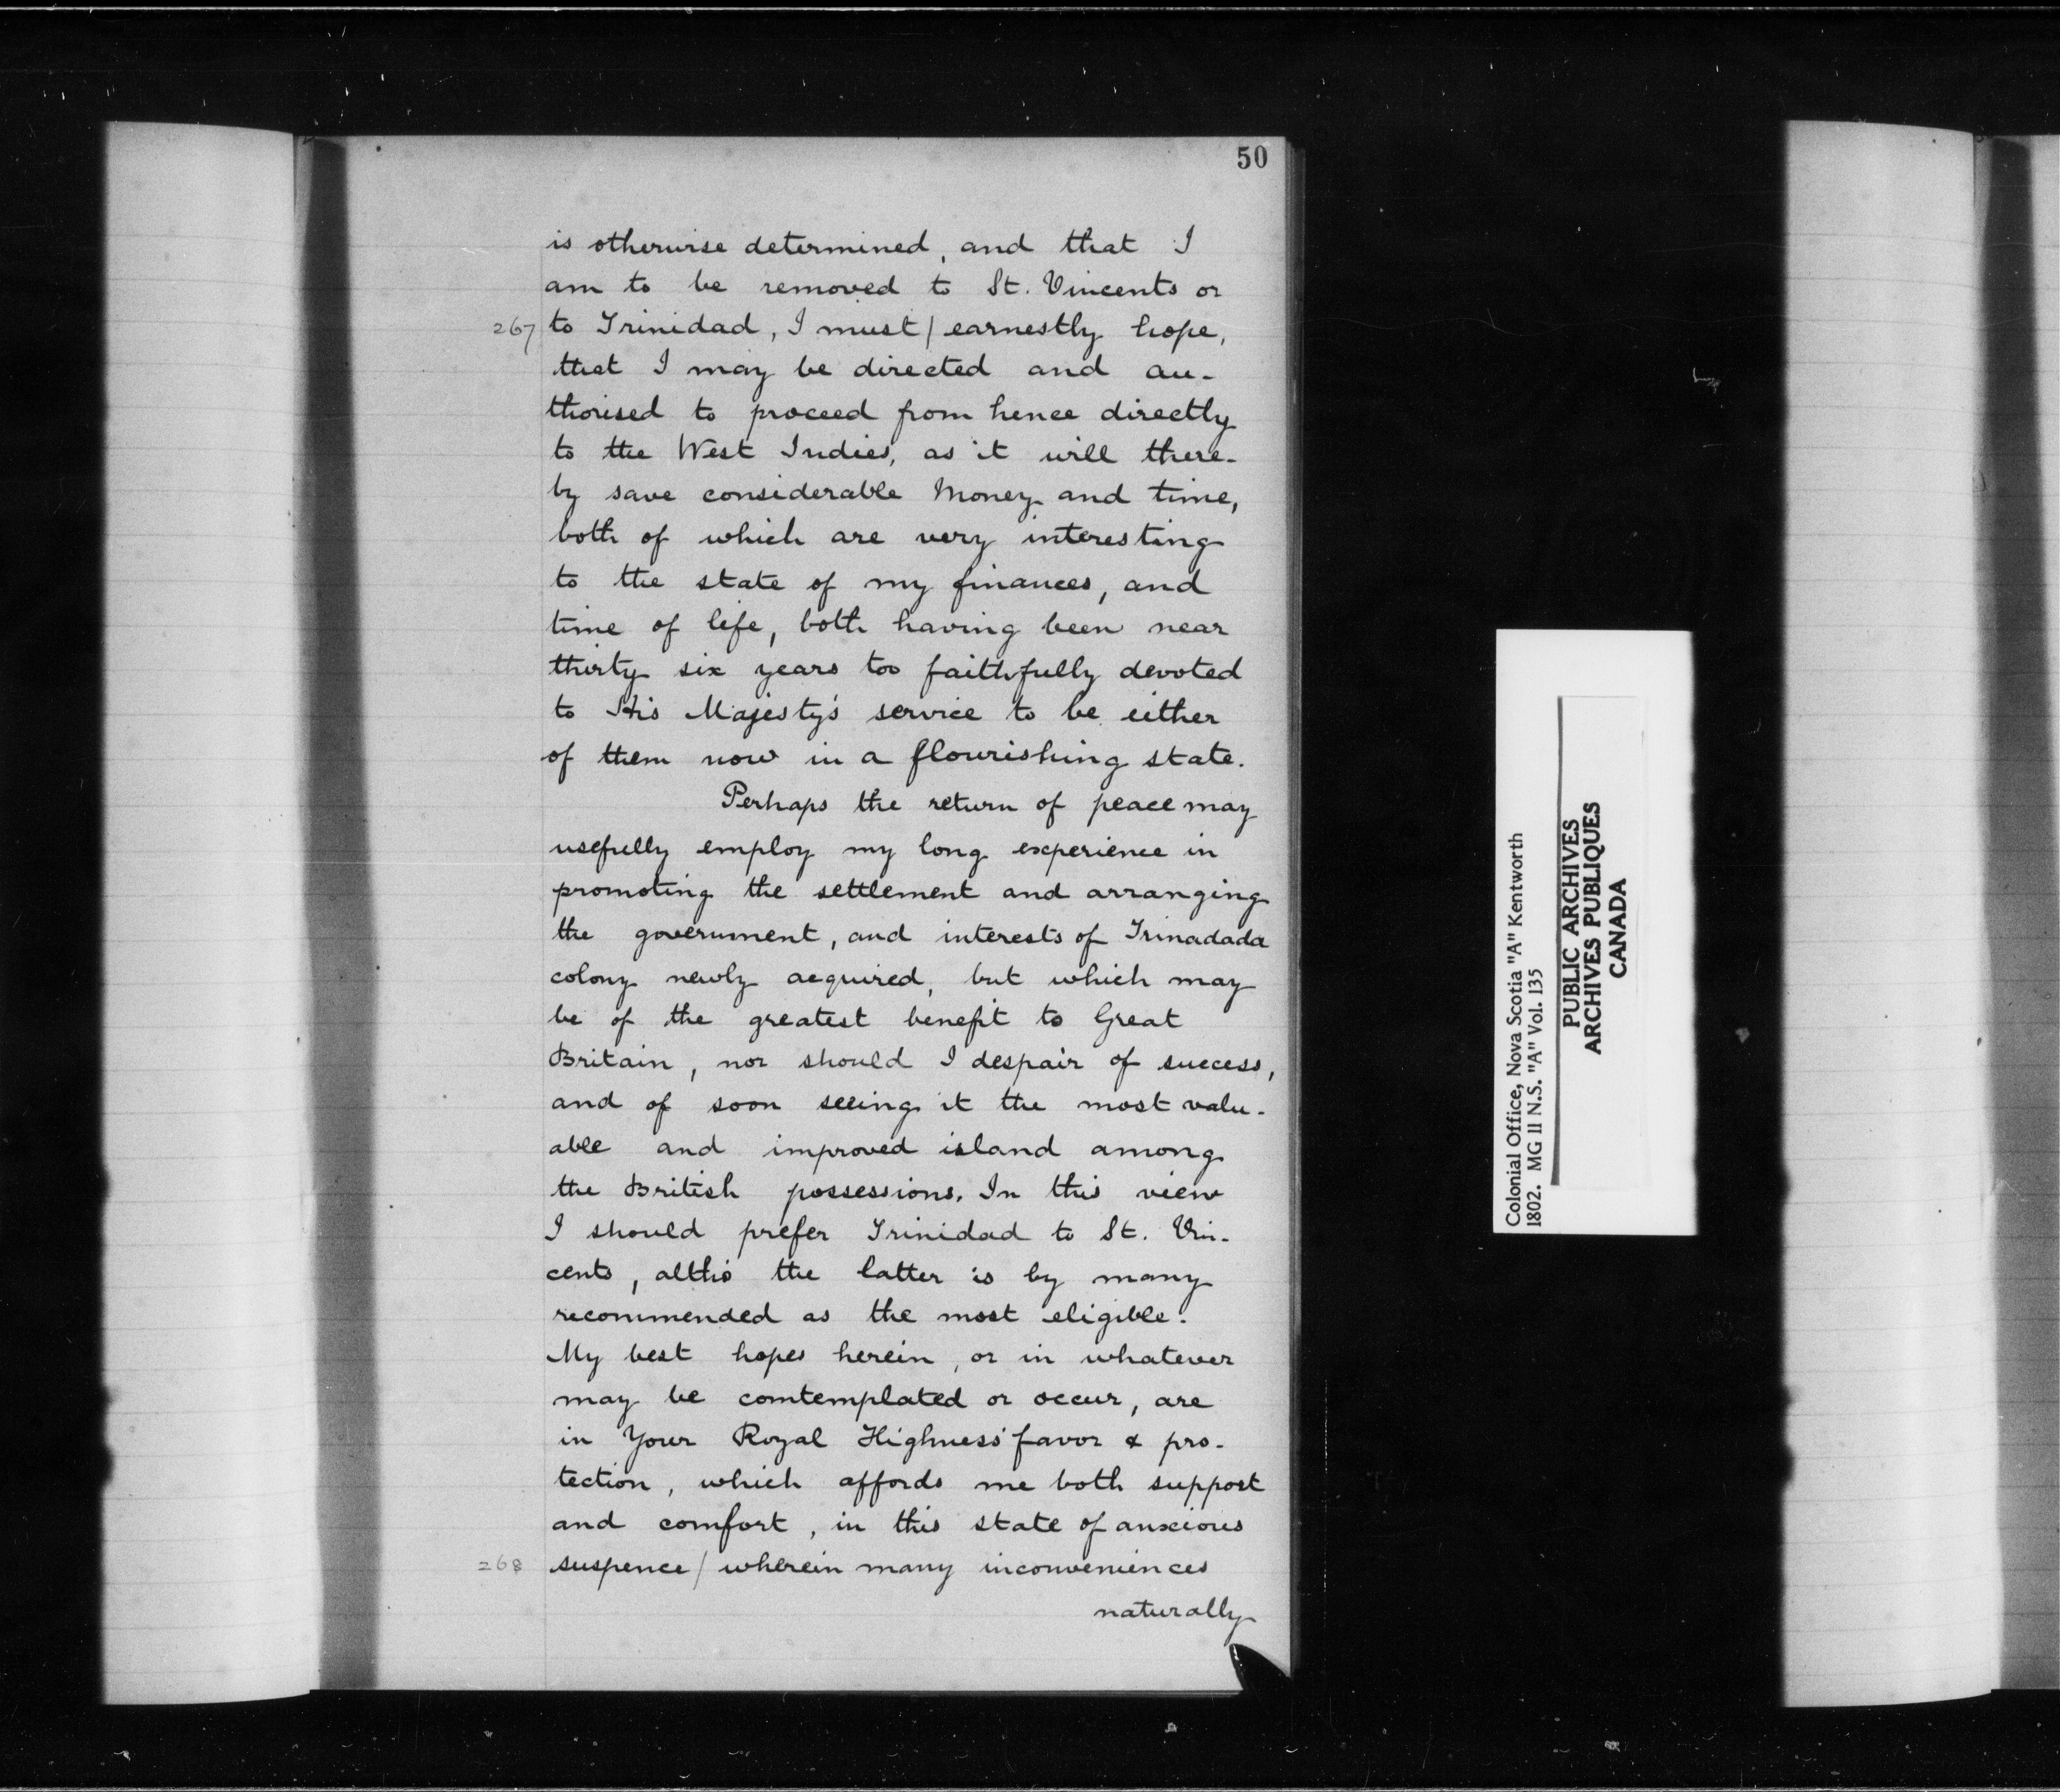 50
is otherwise determined, and that I
am to be removed to St. Vincents or
267 to Trinidad, I must / earnestly hope,
that I may be directed and au-
thorised to proceed from hence directly
to the West Indies, as it will there-
by save considerable Money and time,
both of which are very interesting
to the state of my finances, and
time of life, both having been near
thirty six years too faithfully devoted
to His Majesty's service to be either
of them now in a flourishing state.
Perhaps the return of peace may
usefully employ my long experience in
promoting the settlement and arranging
the government, and interests of Trinadada
colony newly acquired, but which may
be of the greatest benefit to Great
Britain, nor should I despair of success,
and of soon seeing it the most valu-
able and improved island among
the British possessions. In this view
I should prefer Trinidad to St. Vin-
cents, altho' the latter is by many
recommended as the most eligible.
My best hopes herein, or in whatever
may be comtemplated or occur, are
in Your Royal Highness' favor & pro-
tection, which affords me both support
and comfort, in this state of anxious
268 suspence / wherein many inconveniences
naturally
Colonial Office, Nova Scotia "A" Kentworth
1802. MG 11 N.S. "A" Vol. 135
PUBLIC ARCHIVES
ARCHIVES PUBLIQUES
CANADA